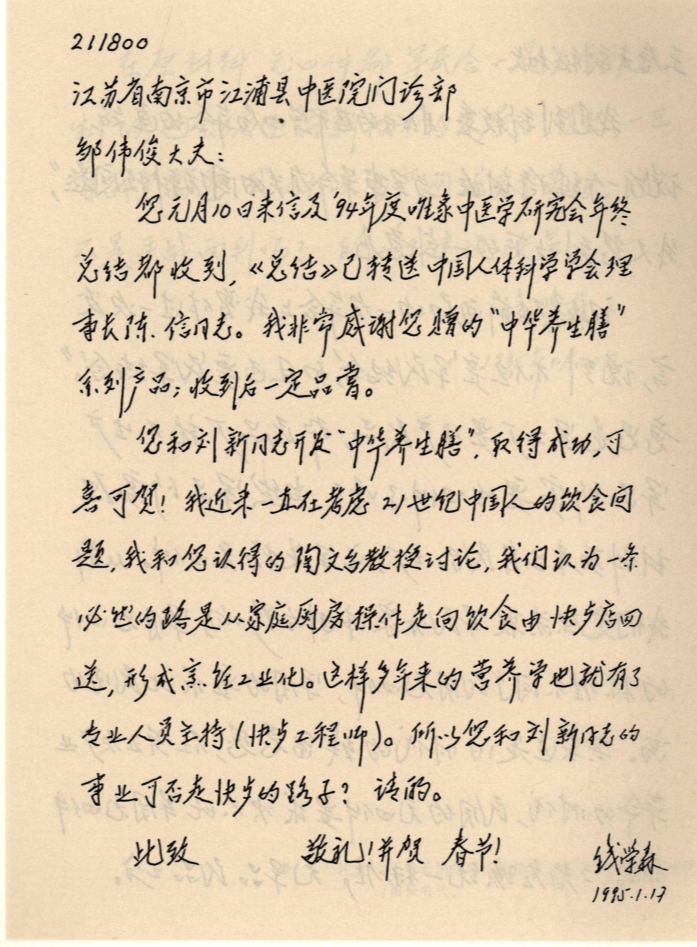 211800
江苏省南京市江浦县中医院门诊部
邹伟俊大夫：
您元月10日来信及'94年度唯象中医学研究会年终
总结都收到，《总结》已转送中国人体科学学会理
事长陈信同志。我非常感谢您赠的“中华养生膳”
系列产品；收到后一定品尝。
您和刘新同志开发“中华养生膳”，取得成功，可
喜可贺！我近来一直在考虑21世纪中国人的饮食问
题，我和您认得的陶文台教授讨论，我们认为一条
必然的路是从家庭厨房操作走向饮食由快步店回
送，形成烹饪工业化。这样多年来的营养学也就有了
专业人员主持（快步工程师）。所以您和刘新同志的
事业可否走快步的路子？请酌。
此致 敬礼！并贺 春节！
钱学森
1995.1.17